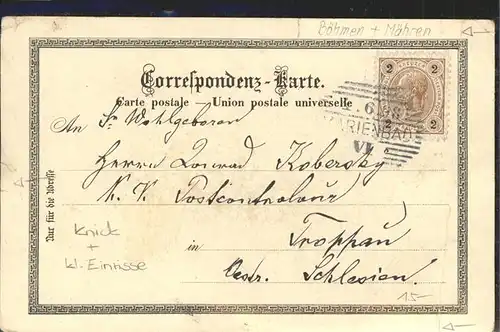 Böhmen + Mähren
Correspondenz-Karte.
Carte postale — Union postale universelle
2 2
2 2
MARIENBAD
An Sr Wohlgeboren
Herrn Conrad Kobersky
K. K. Postcontrolour
in Troppau
Oestr. Schlesien.
Nur für die Adresse
Knick
+
kl. Einrisse
15-